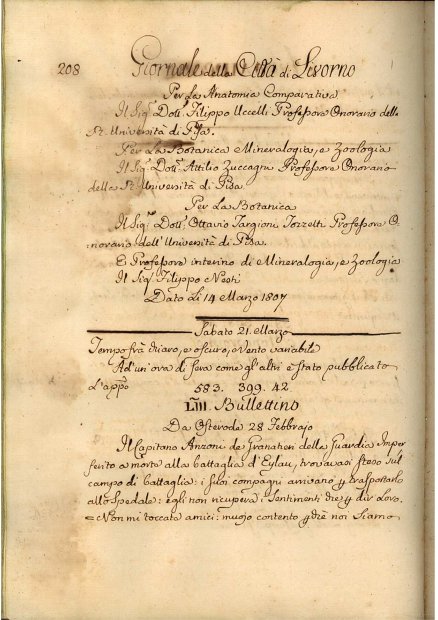 208 Giornale della Città di Livorno
Per La Anatomia Comparativa
Il Sigr. Dottr. Filippo Uccelli Professore Onorario della
Rl. Università di Pisa.
Per La Botanica Mineralogia, e Zoologia
Il Sigr. Dottr. Attilio Zuccagni Professore Onorario
della Rl. Università di Pisa
Per La Botanica
Il Sigr. Dottr. Ottavio Targioni Tozzetti Professore O-
norario dell'Università di Pisa.
E Professore interino di Mineralogia, e Zoologia
Il Sigr. Filippo Nesti
Dato Li 14 Marzo 1807
Sabato 21. Marzo
Tempo frà chiaro, e oscuro, e vento variabile
Ad un'ora di sera come gl'altri è stato pubblicato
L'appo
583. 399. 42.
LIII. Bullettino
Da Osterode 28 Febbrajo
Il Capitano Anzoni de Granatieri della Guardia Imper
ferito a morte alla battaglia d'Eylau, trovavasi steso sul
campo di battaglia: i suoi compagni arrivano p trasportarlo
allo Spedale: egli non ricupera i Sentimenti che p dir Loro.
= Non mi toccate amici: muojo contento p che noi Siamo